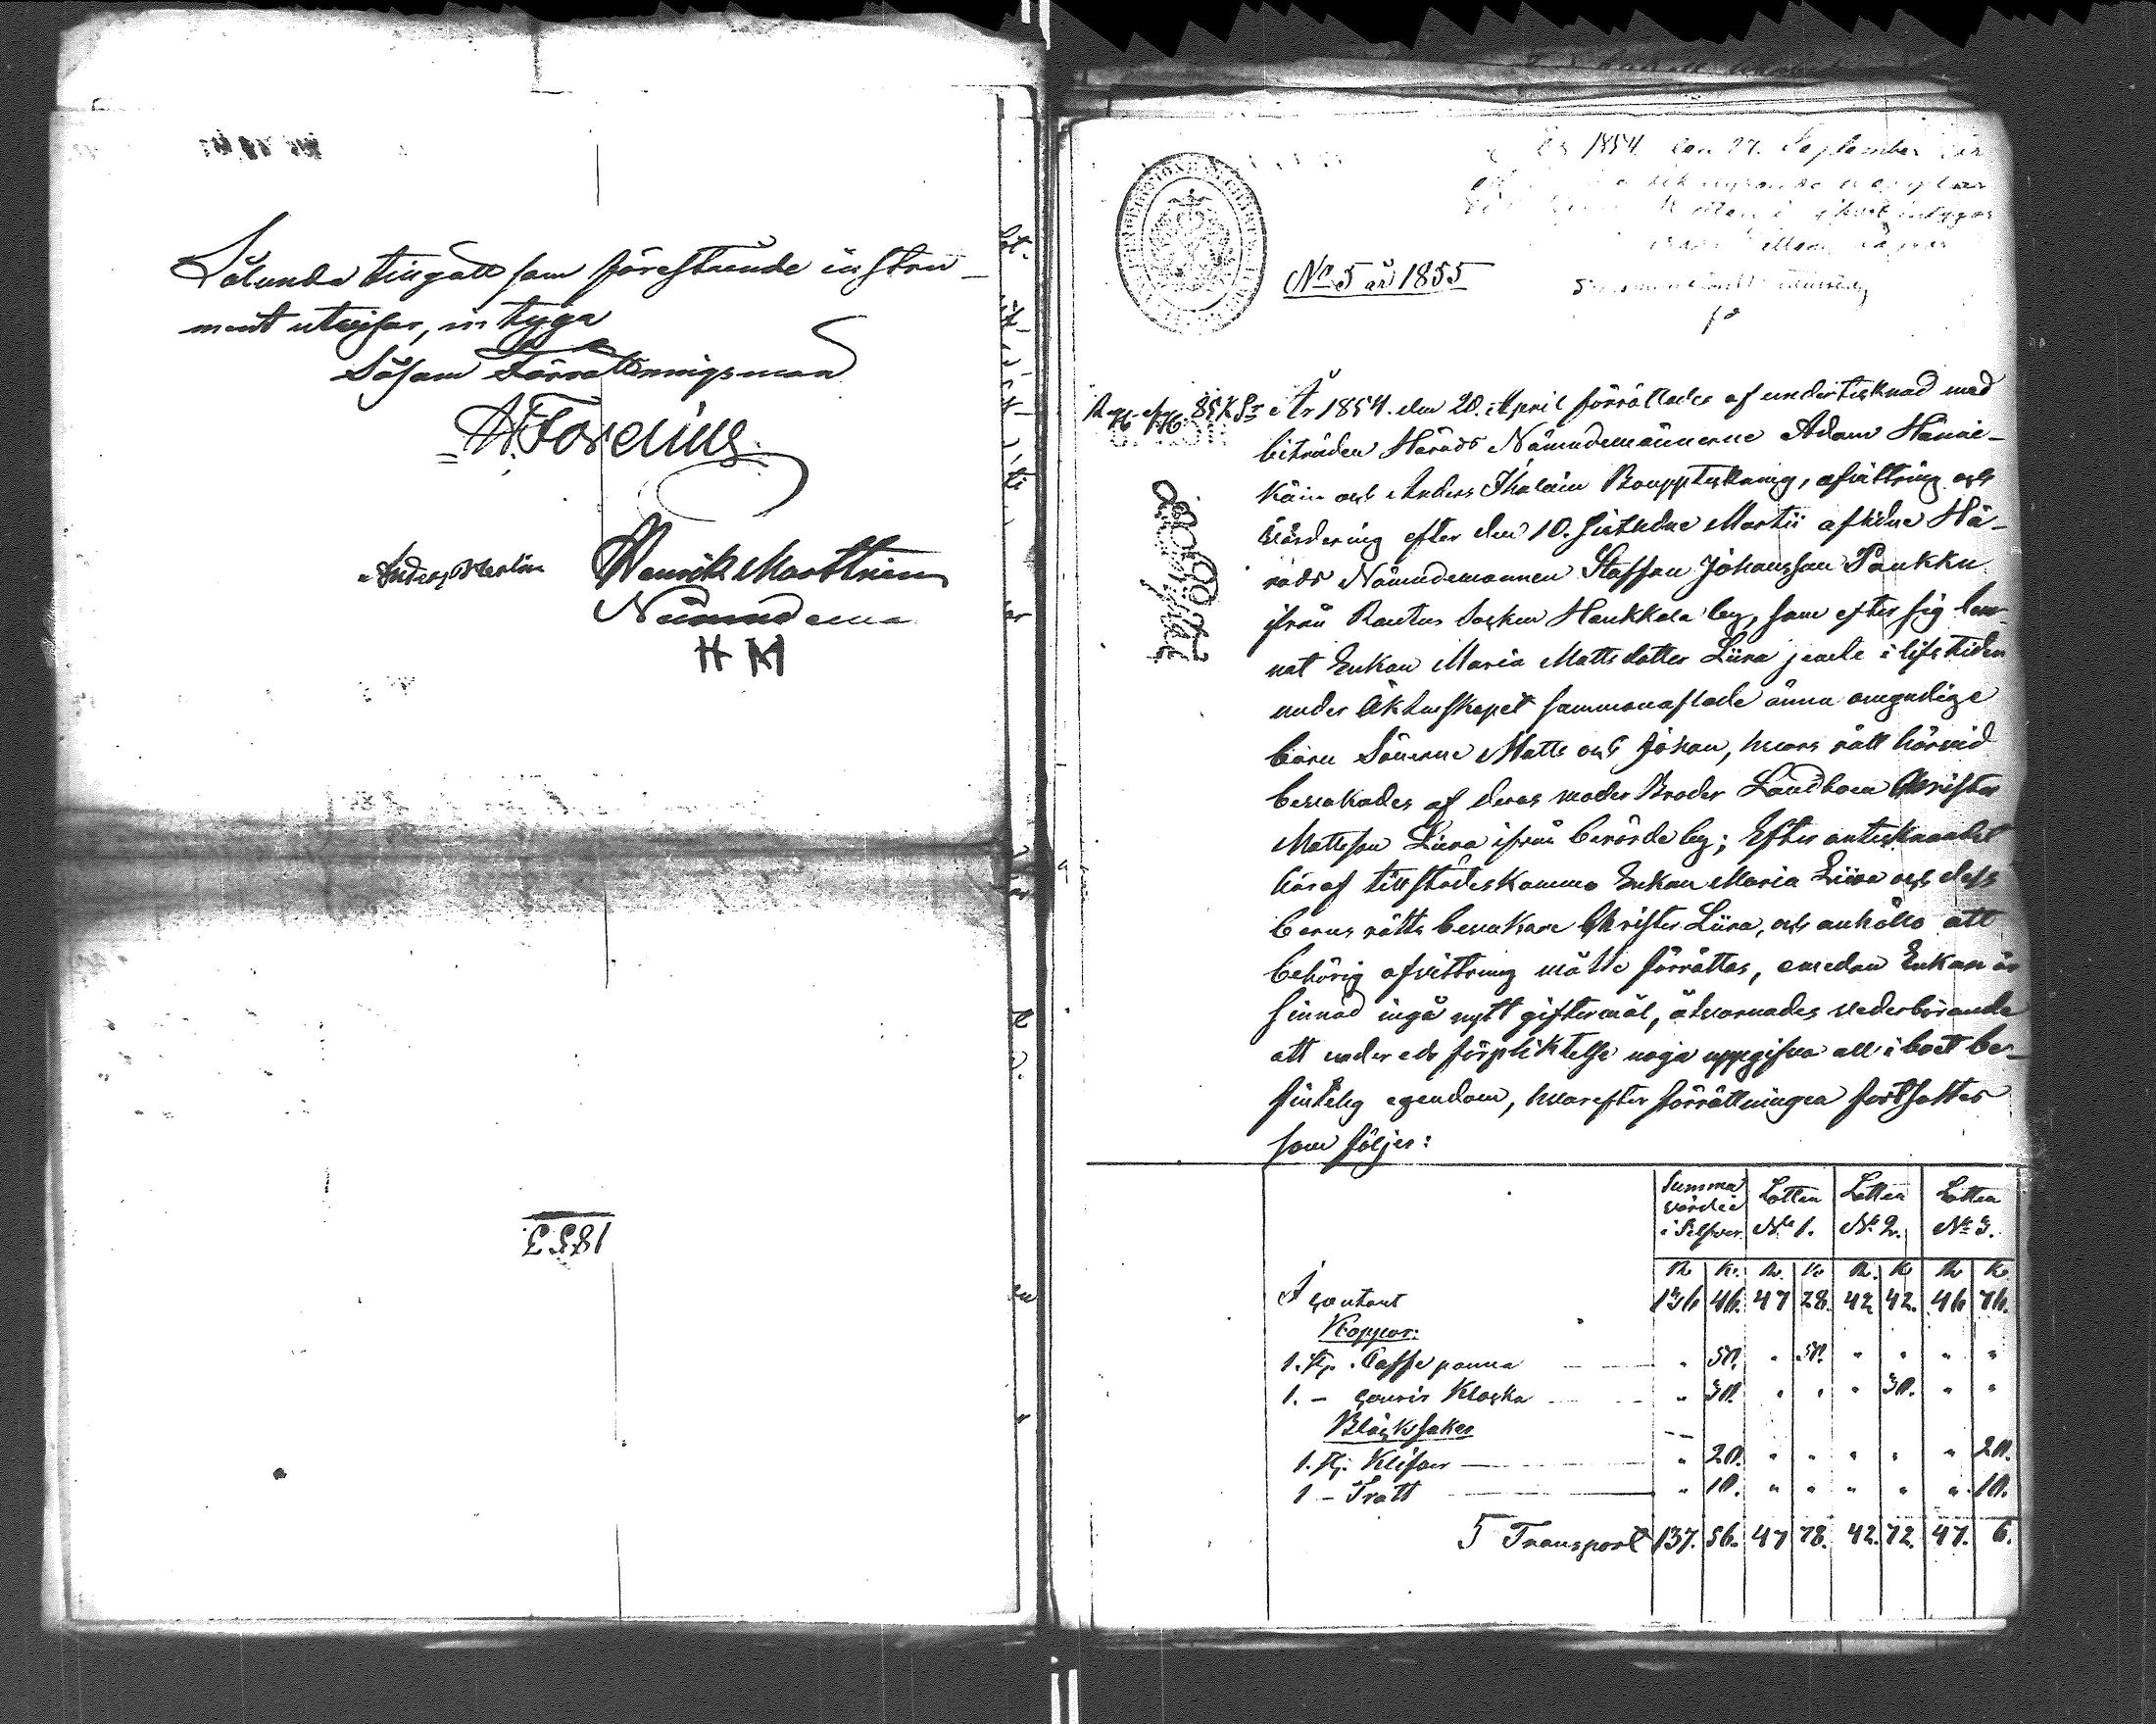 Sålunda tingått som förestående instru-
ment utvisar, intyga
Såsom Förrättningsman
A Forelius
Anders Henrik Marttinen
Nämndeman
H M
1853.
År 1854 den 27. September
No 5 år 1855
År 1854. den 20. April förrättades af undertecknad med
biträden Härads Nämndemännerne Adam Hämäi-
käin och Anders Ihalain Bouppteckning, afvittring och
värdering efter den 10. sistledne Martii aflidne Hä-
rads Nämndemannen Staffan Johansson Paukku
ifrån Rautus Socken Haukkala by, som efter sig lem-
nat Enkan Maria Mattsdotter Liira jemte i lifstiden
under äktenskapet sammanaflade ännu omyndige
barn Sönerne Matts och Johan, hvars rätt härvid
bevakades af deras moder Broder Landboen Christer
Mattsson Liira ifrån berörde by; Efter antecknandet
häraf tillstädeskommo Enkan Maria Liira och dess
barns rätts bevakare Christer Liira, och anhöllo att
behörig afvittring måtte förrättas, emedan Enkan är
sinnad ingå nytt giftermål, åtvarnades vederbörande
att under eds förpliktelse noga uppgifva all i boet be-
fintelig egendom, hvarefter förrättningen fortsattes
som följer:
Summa värde i Silfver Lotten No 1. Lotten No 2. Lotten No 3.
R. K. R. K. R. K. R. K.
I contant 136 46. 47 28. 42 42. 46 76.
Koppar:
1. St. Caffe panna " 50. " 50. " " " "
1. – Klocka " 30. " " " 30. " "
Bläcksaker
1. St. " 20. " " " " " 20.
1 – Tratt " 10. " " " " " 10.
Transport 137. 56. 47 78. 42. 72. 47. 6.